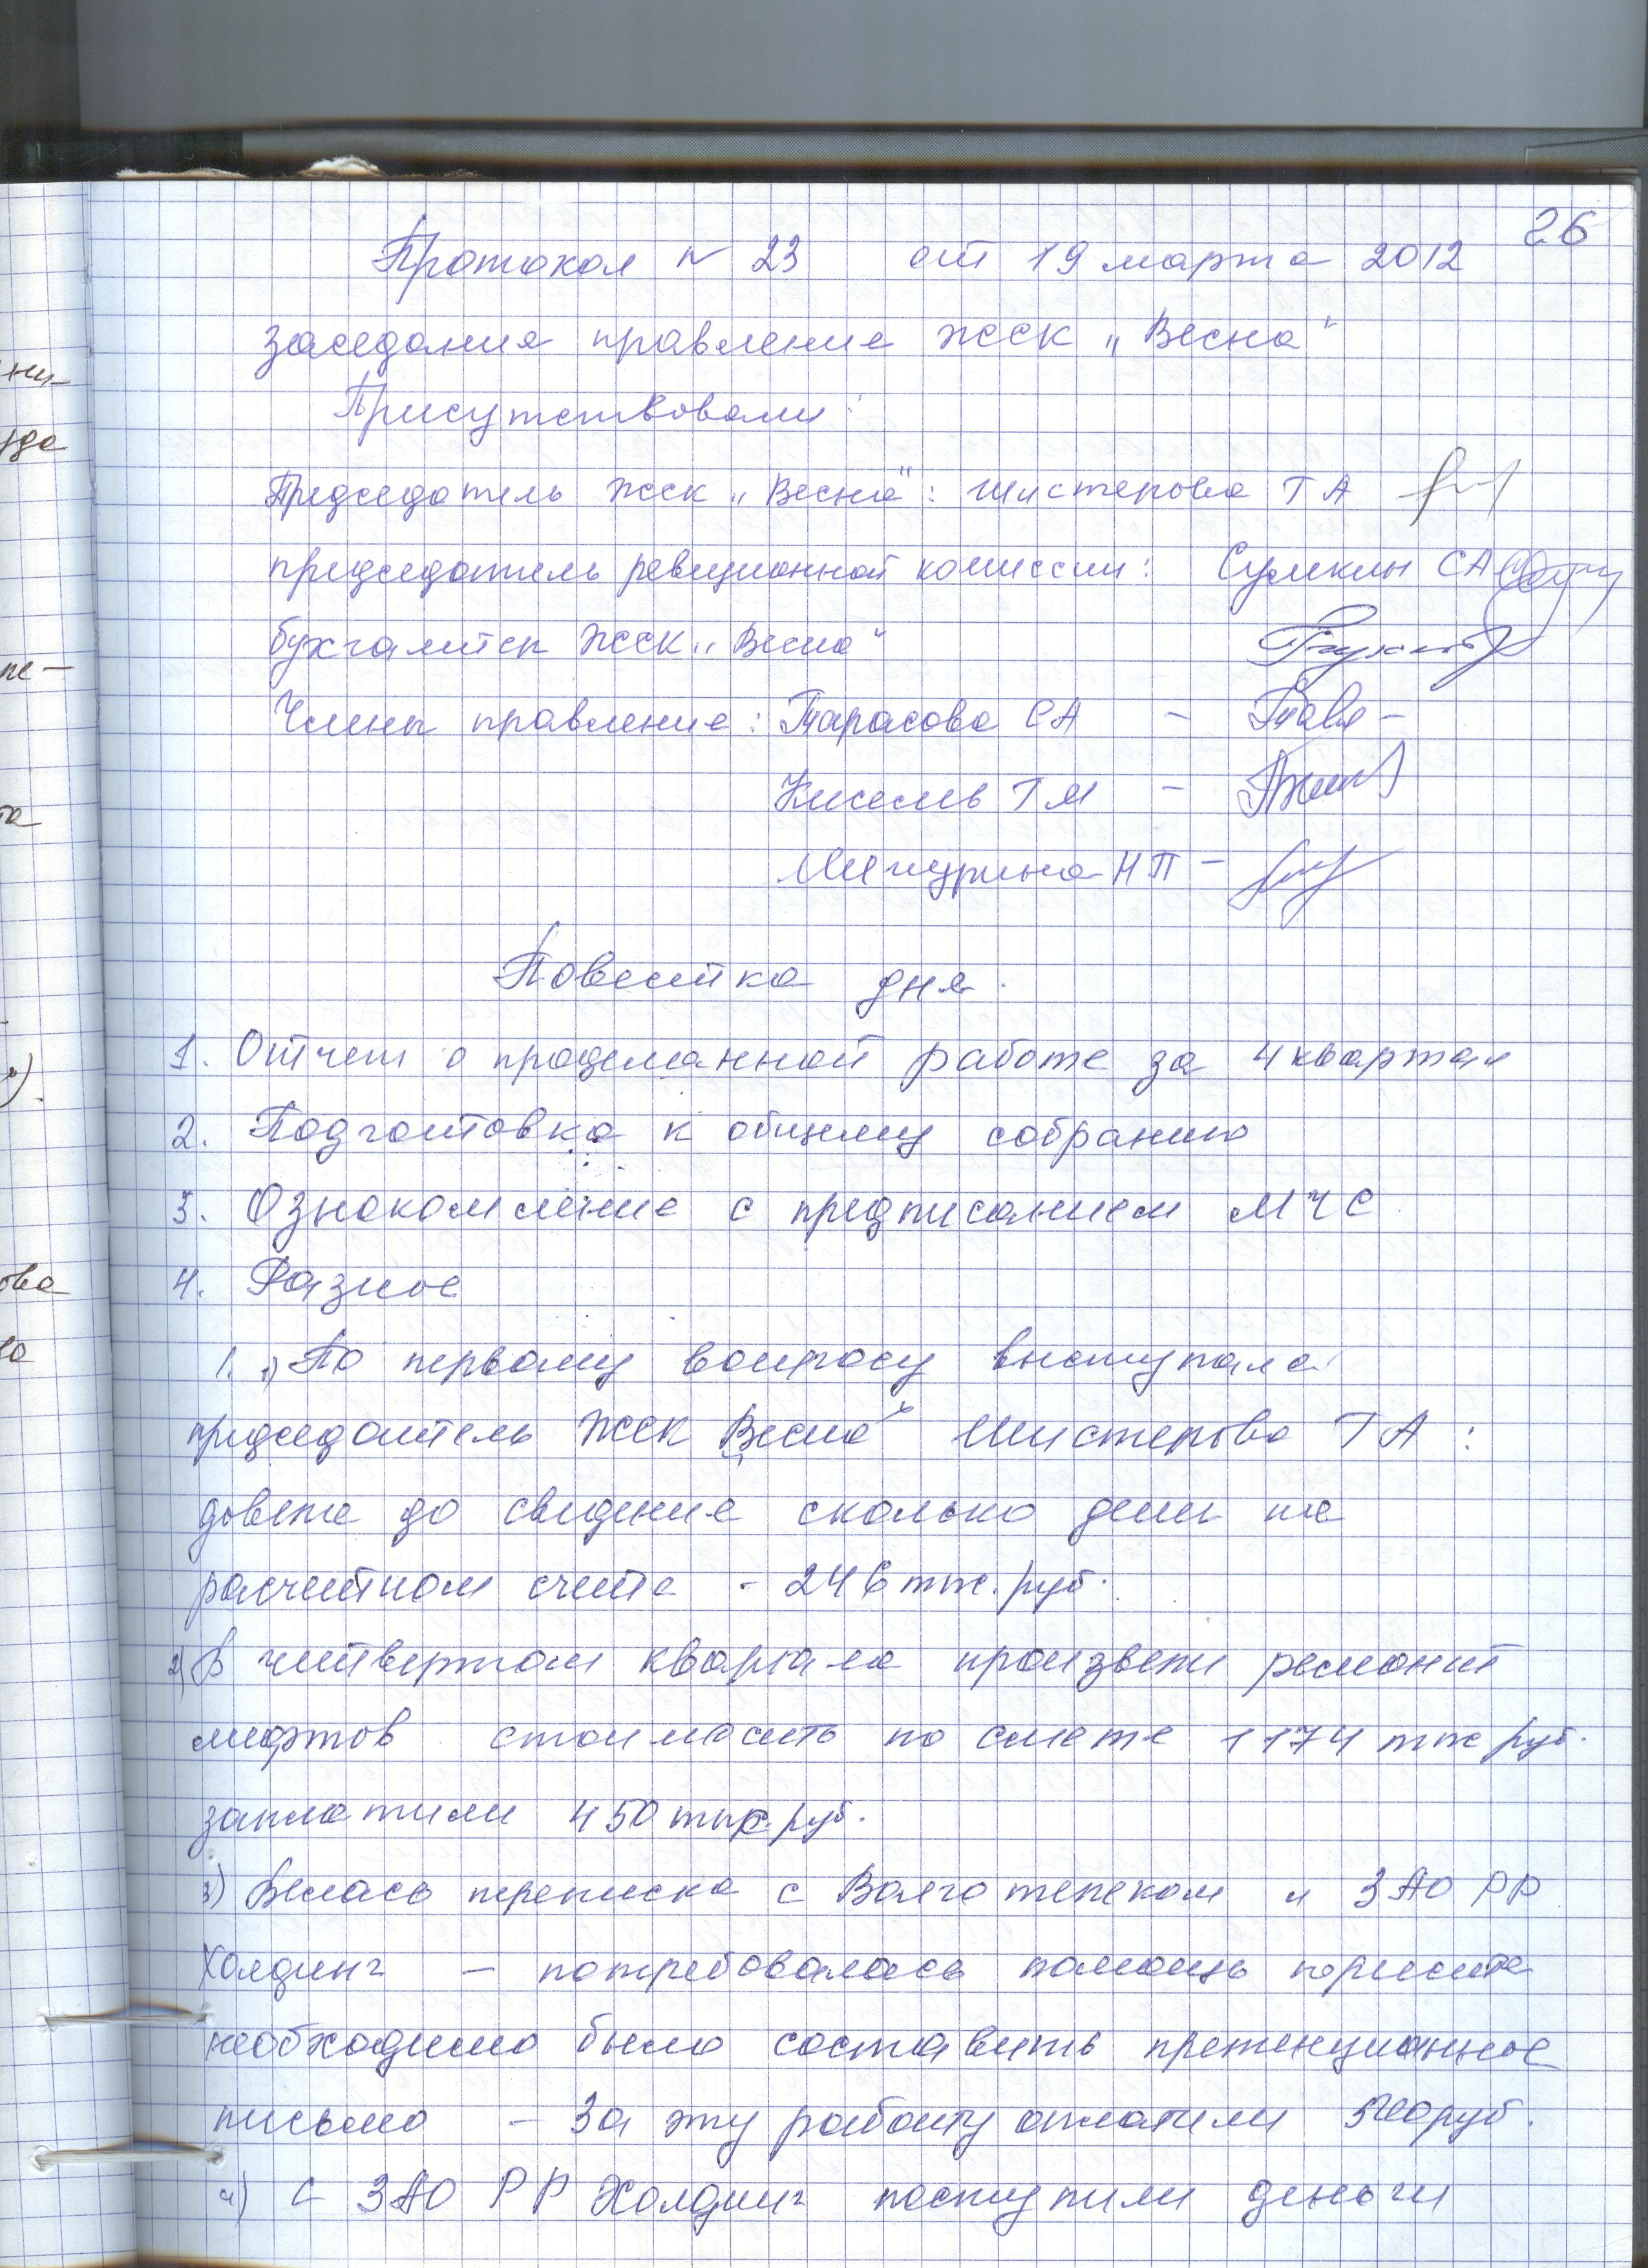 26
Протокол N 23 от 19 марта 2012
заседания правления ЖСК „Весна"
Присутствовали:
Председатель ЖСК „Весна": Шистерова Т А
председатель ревизионной комиссии: Сумкин СА
бухгалтер ЖСК „Весна"
Члены правления: Тарасова СА -
Кисель Т М -
Мичурина НП -
Повестка дня.
1. Отчет о проделанной работе за 4 квартал
2. Подготовка к общему собранию
3. Ознакомление с предписанием МЧС
4. Разное
1. 1) По первому вопросу выступала
председатель ЖСК „Весна" Шистерова Т А :
довела до сведения сколько денег на
расчетном счете - 246 тыс. руб.
2) В четвертом квартале произвели ремонт
лифтов стоимость по смете 1174 тыс руб.
заплатили 450 тыс. руб.
3) Велась переписка с Волготелеком и ЗАО РР
Холдинг - потребовалась помощь юриста
необходимо было составить претензионное
письмо - За эту работу оплатили руб.
4) С ЗАО РР Холдинг поступили деньги
ни-
уда
ле-
та
ова